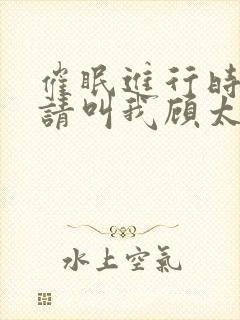 催眠進行時
請叫我顾太
水上空氣